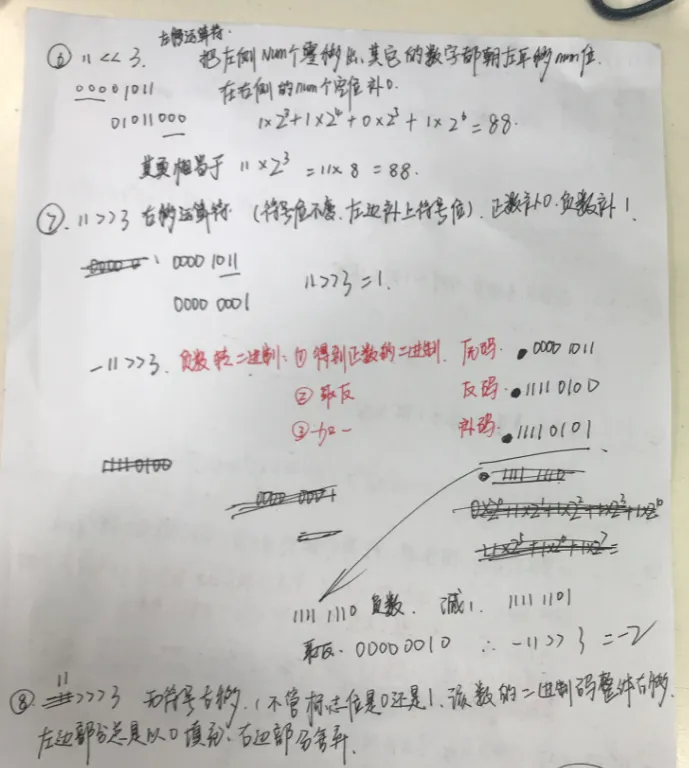 左移运算符.
⑥ 11 << 3. 把左侧Num个零移出,其它的数字都朝左平移num位.
00001011 在右侧的num个空位补0.
01011000 1×2³+1×2⁴+0×2⁵+1×2⁶=88.
其实相当于 11×2³ =11×8 =88.
⑦. 11>>3 右移运算符. (符号位不变.左边补上符号位). 正数补0.负数补1.
0000 1011
0000 0001 11>>3 =1.
-11>>3. 负数转二进制: ① 得到正数的二进制. 原码. 0000 1011
② 取反 反码. 1111 0100
③ 加一 补码. 1111 0101
1111 1110 负数. 减1. 1111 1101
取反. 00000010 ∴ -11>>3 =-2
⑧. 11 >>>3 无符号右移. (不管标志位是0还是1,该数的二进制码整体右移.
左边部分总是以0填充,右边部分舍弃.